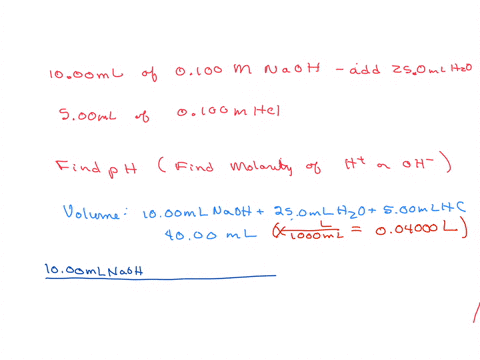 10.00mL of 0.100 M NaOH - add 25.0mL H2O
5.00mL of 0.100 m HCl
Find pH ( Find Molarity of H+ or OH- )
Volume: 10.00mL NaOH + 25.0mL H2O + 5.00mL HC
40.00 mL ( x L/1000mL = 0.04000 L )
10.00mL NaOH